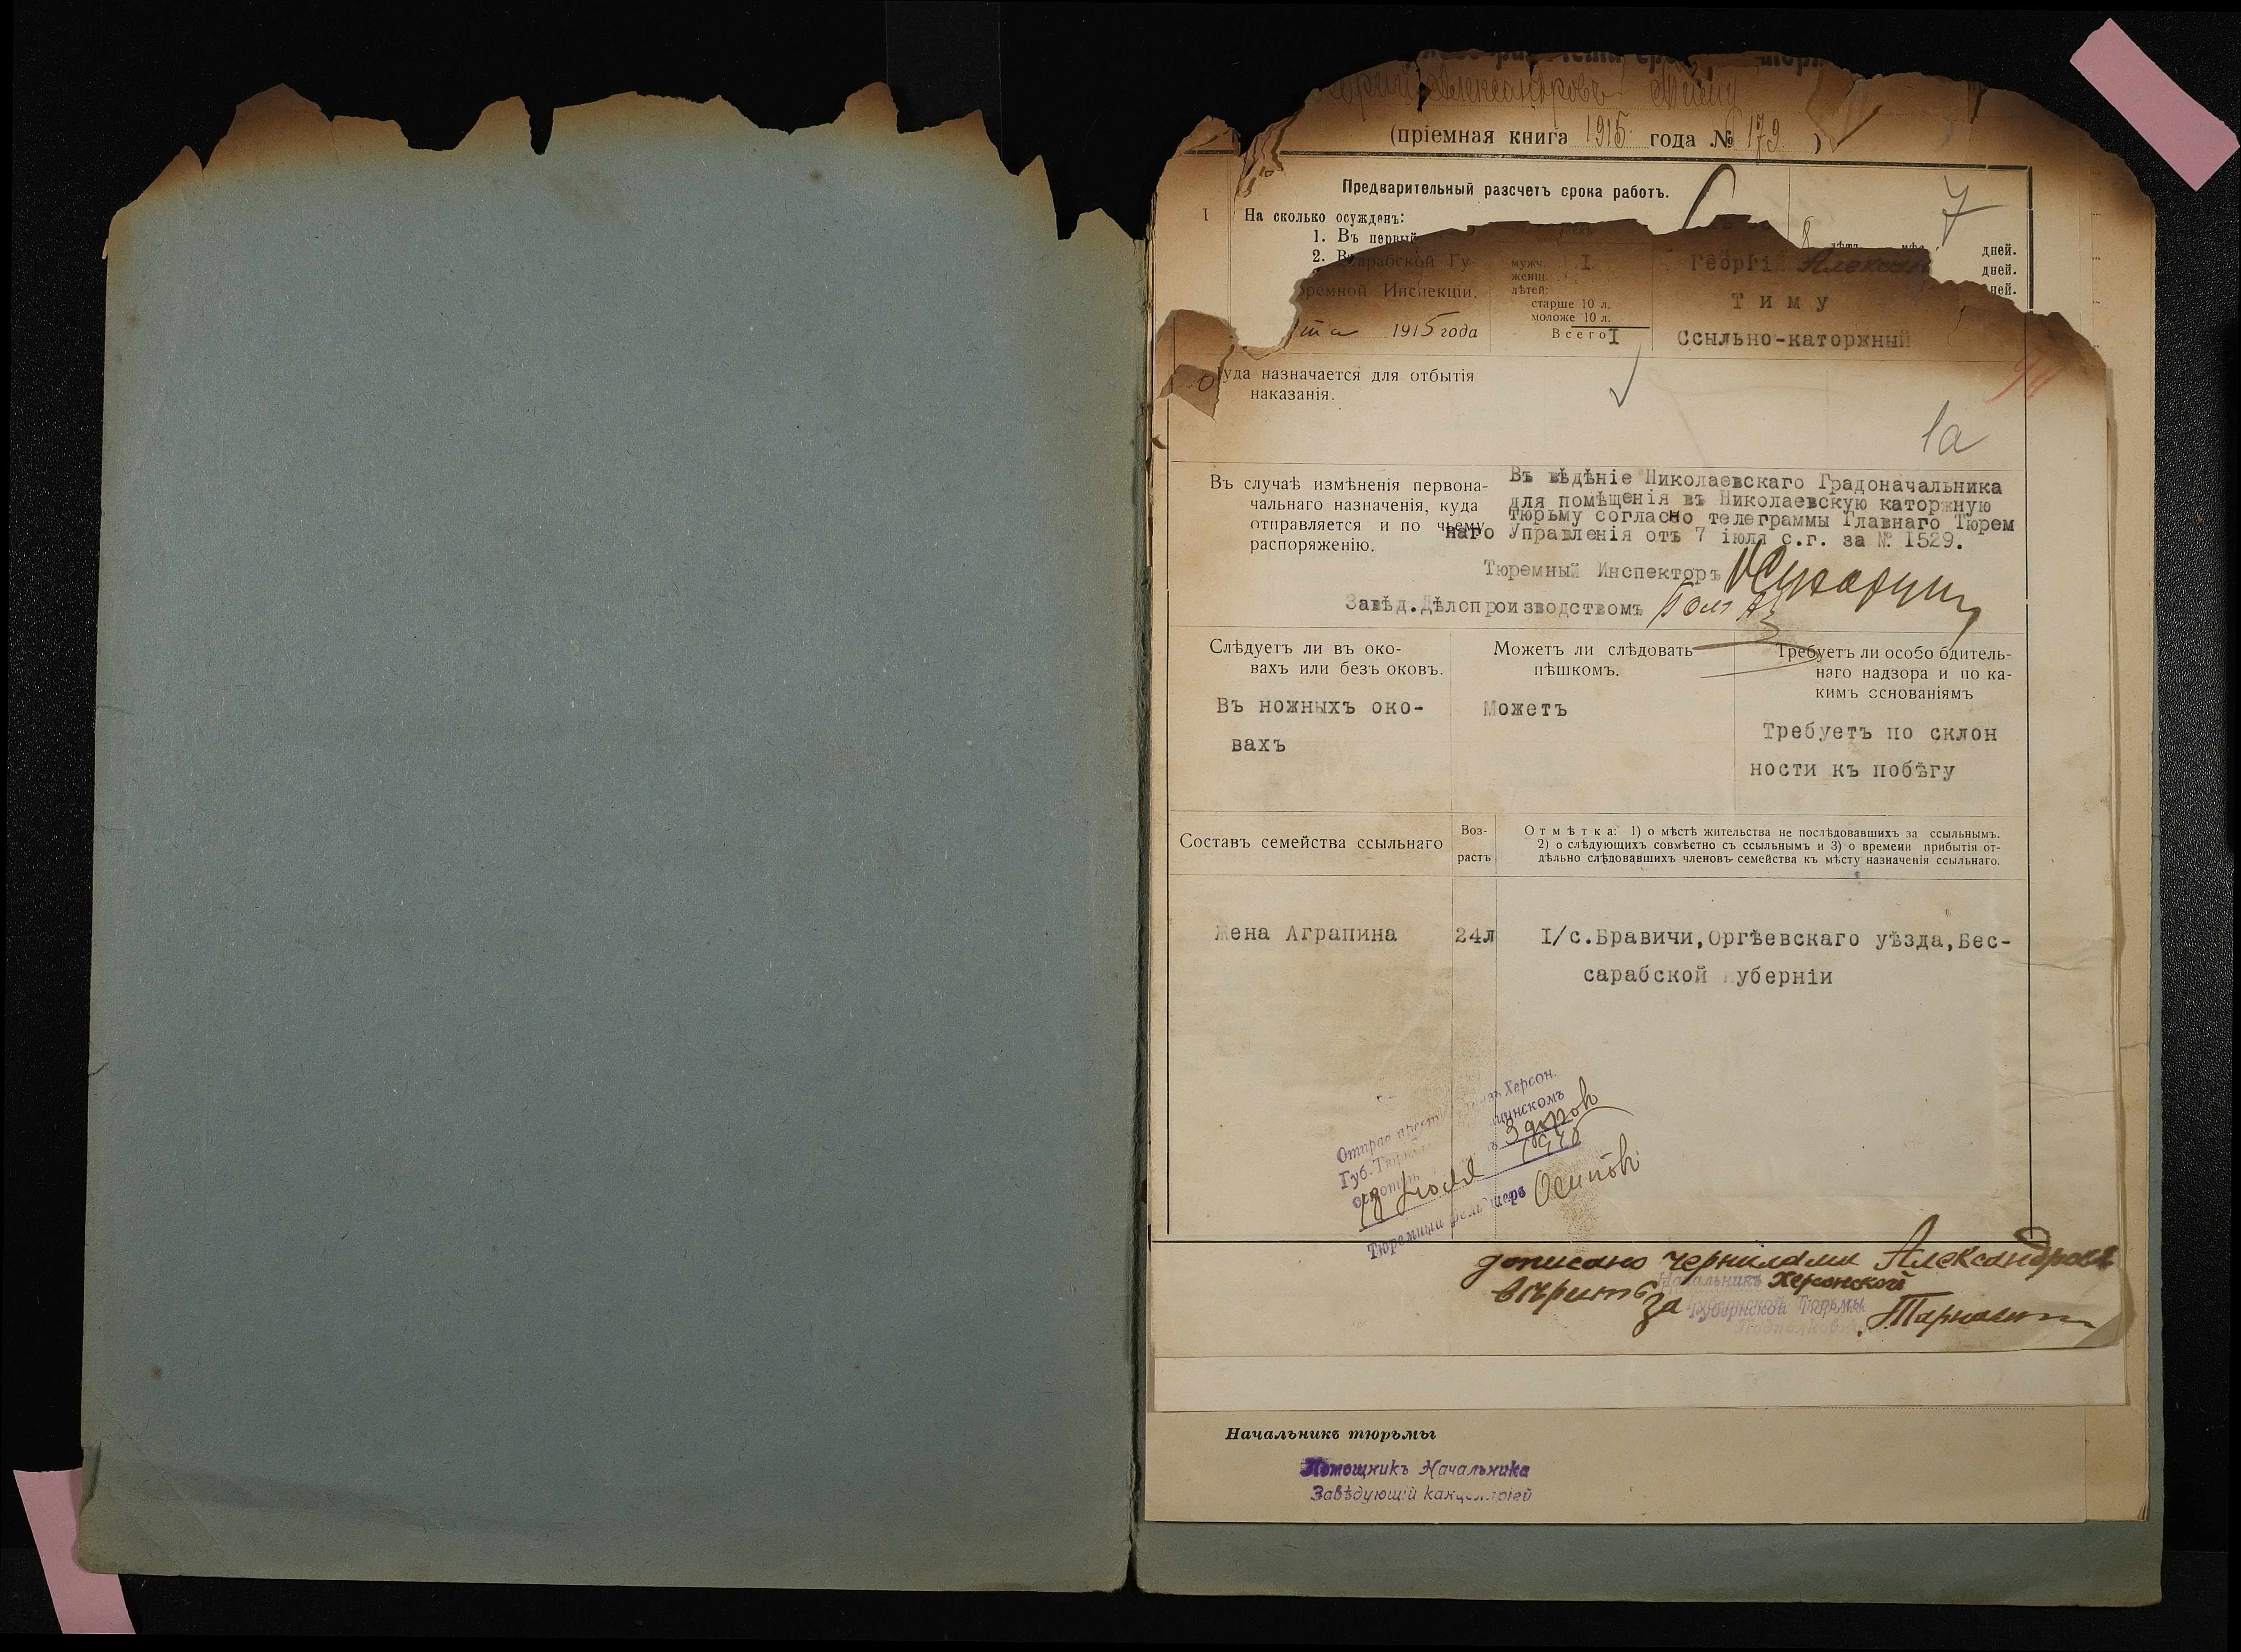 Александровъ Тиму
(пріемная книга 1915 года № 179 )
Предварительный разсчетъ срока работъ.
I На сколько осужденъ:
1. Въ первый
8 лѣтъ мѣс. дней.
2.
дней.
дней.
7
арабской Гу-
ремной Инспекціи.
1915 года
мужч. I
женщ.
дѣтей:
старше 10 л.
моложе 10 л.
Всего I
Георгій Алексан
Тиму
Ссыльно-каторжный
уда назначается для отбытія
наказанія.
1а
Въ случаѣ измѣненія первона-
чальнаго назначенія, куда
отправляется и по чьему
распоряженію.
Въ вѣдѣніе Николаевскаго Градоначальника
для помѣщенія въ Николаевскую каторжную
тюрьму согласно телеграммы Главнаго Тюрем
наго Управленія отъ 7 іюля с.г. за № I529.
Тюремный Инспекторъ
Завѣд.Дѣлопроизводствомъ
Слѣдуетъ ли въ око-
вахъ или безъ оковъ.
Въ ножныхъ око-
вахъ
Можетъ ли слѣдовать
пѣшкомъ.
Можетъ
Требуетъ ли особо бдитель-
наго надзора и по ка-
кимъ основаніямъ
Требуетъ по склон
ности къ побѣгу
Составъ семейства ссыльнаго
Воз-
растъ
Отмѣтка: 1) о мѣстѣ жительства не послѣдовавшихъ за ссыльнымъ.
2) о слѣдующихъ совмѣстно съ ссыльнымъ и 3) о времени прибытія от-
дѣльно слѣдовавшихъ членовъ семейства къ мѣсту назначенія ссыльнаго.
Жена Аграпина
24л
I/с.Бравичи,Оргѣевскаго уѣзда,Бес-
сарабской губерніи
Херсон.
Губ.
Здоровъ
18 Іюля 1915
Тюремный фельдшеръ Осиповъ
дописано чернилами Александровъ
вѣрить
За Начальникъ Херсонской
Губернской Тюрьмы
Подполков
Начальникъ тюрьмы
Помощникъ Начальника
Завѣдующій канцеляріей